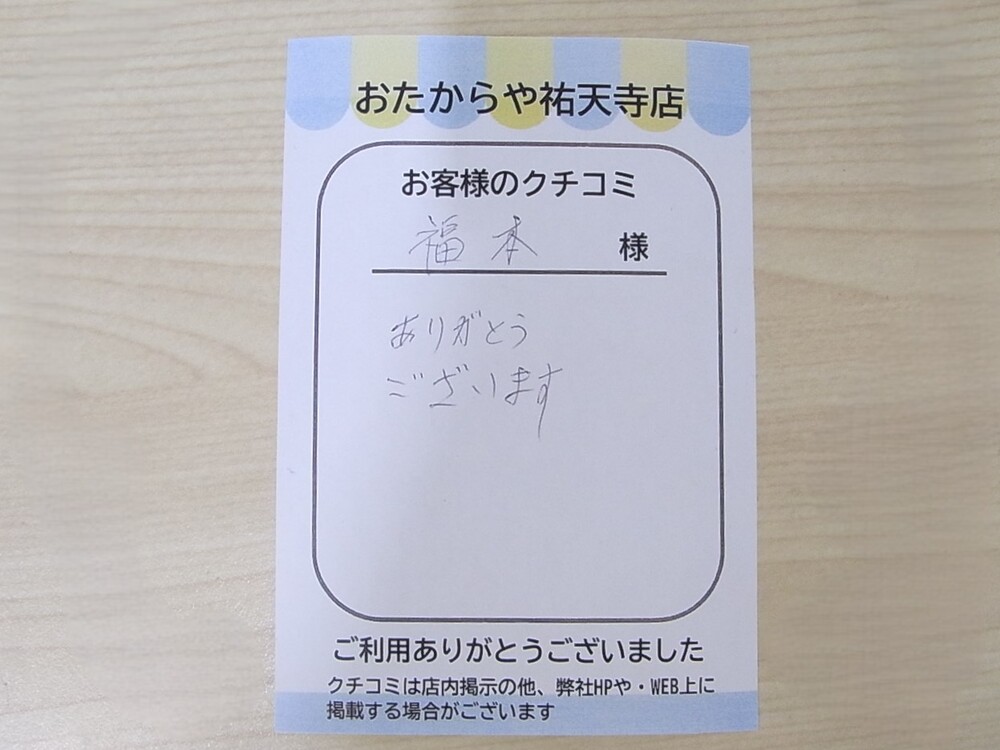 おたからや祐天寺店
お客様のクチコミ
福本 様
ありがとう
ございます
ご利用ありがとうございました
クチコミは店内掲示の他、弊社HPや・WEB上に
掲載する場合がございます